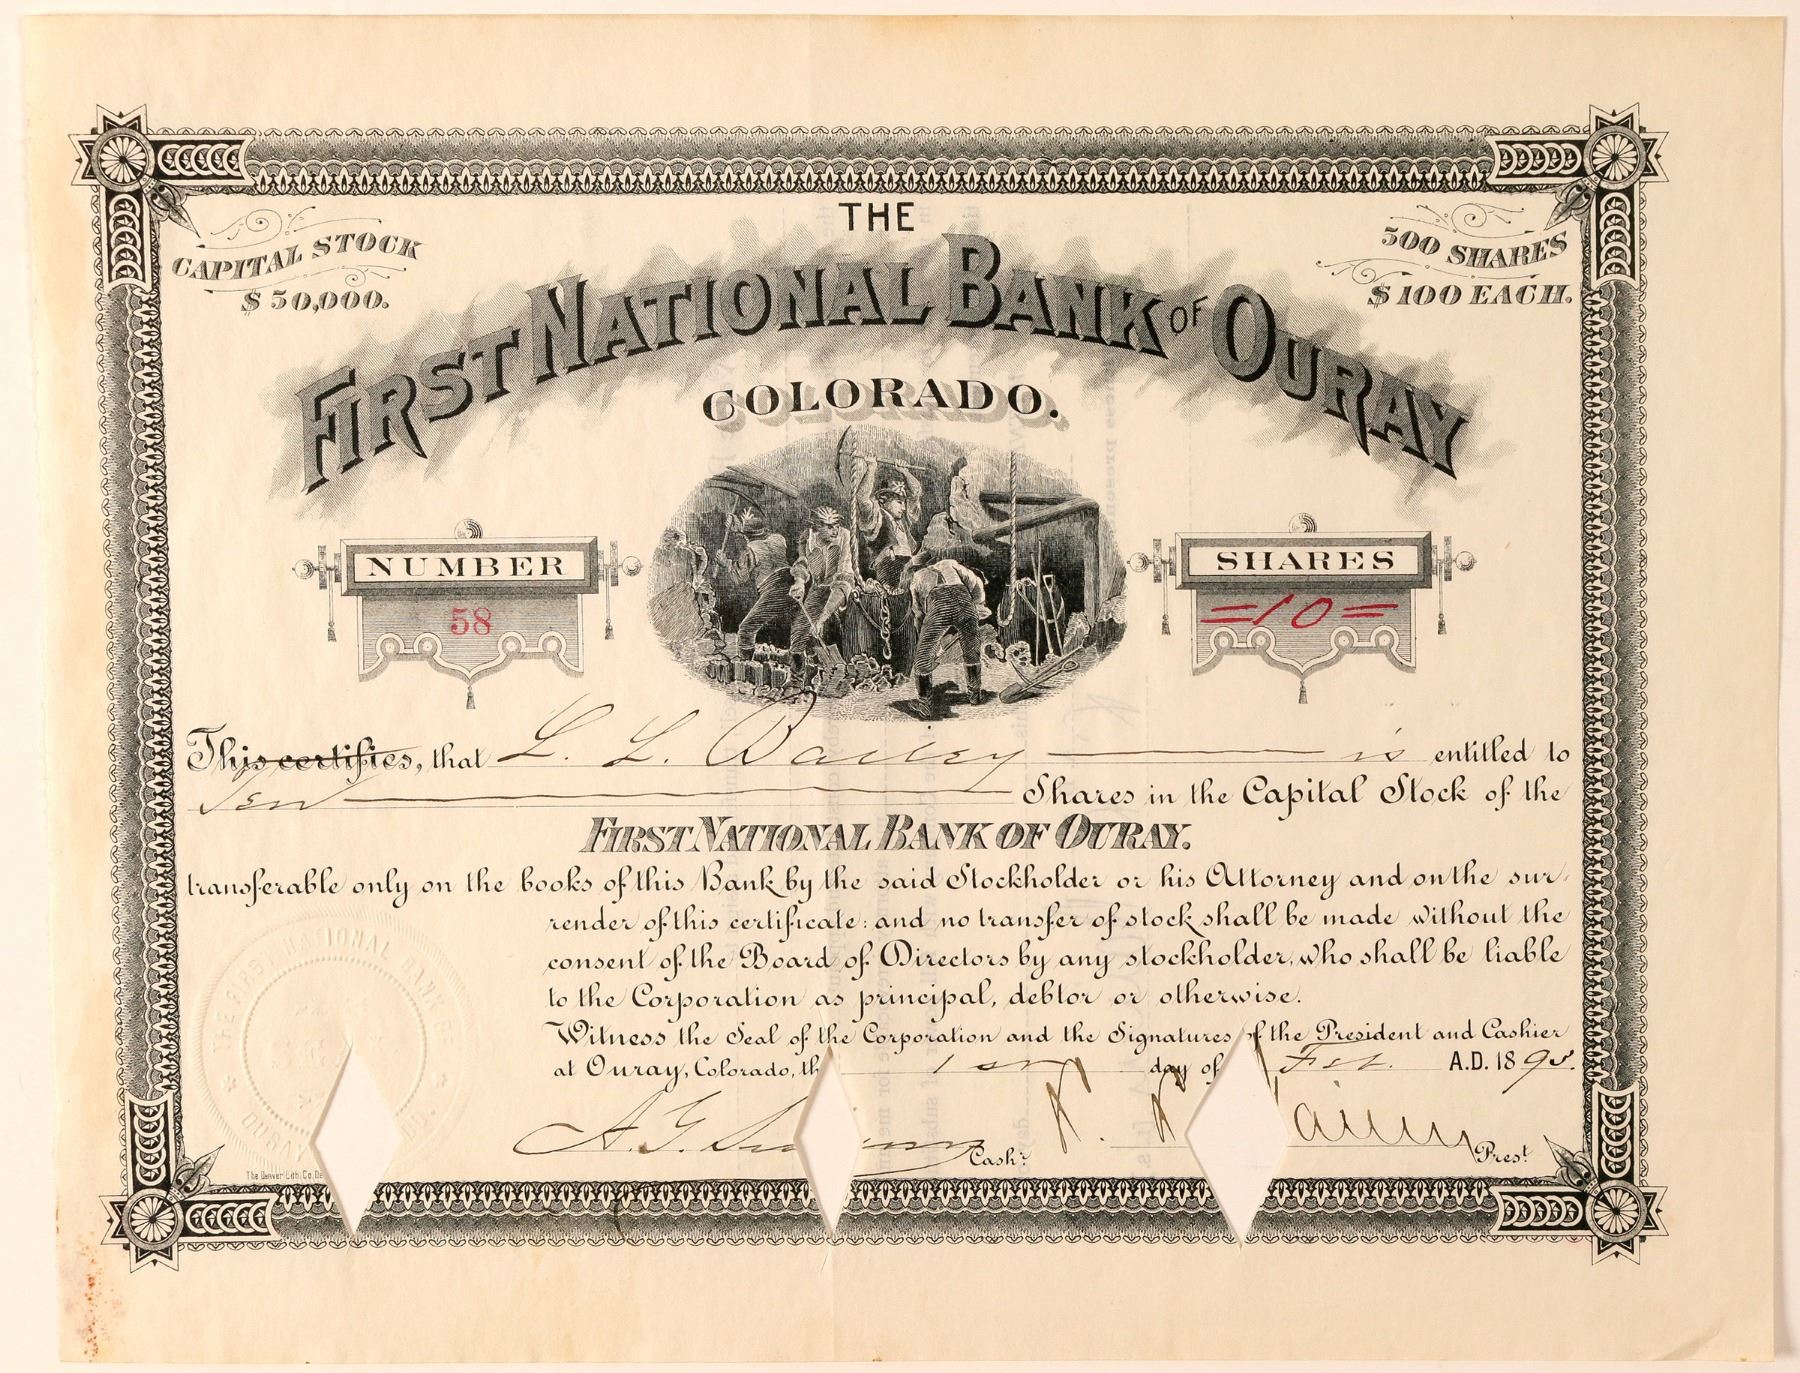 THE
CAPITAL STOCK
$50,000.
500 SHARES
$100 EACH.
FIRST NATIONAL BANK OF OURAY
COLORADO.
NUMBER
58
SHARES
=10=
This certifies, that L. L. Bailey is entitled to
Ten Shares in the Capital Stock of the
FIRST NATIONAL BANK OF OURAY.
transferable only on the books of this Bank by the said Stockholder or his Attorney and on the sur-
render of this certificate: and no transfer of stock shall be made without the
consent of the Board of Directors by any stockholder, who shall be liable
to the Corporation as principal, debtor or otherwise.
Witness the Seal of the Corporation and the Signatures of the President and Cashier
at Ouray, Colorado, th 1 day of Feb. A.D. 1895.
A. G. Cashr.
Bailey Prest.
THE FIRST NATIONAL BANK
OURAY
The Denver Lith. Co. De